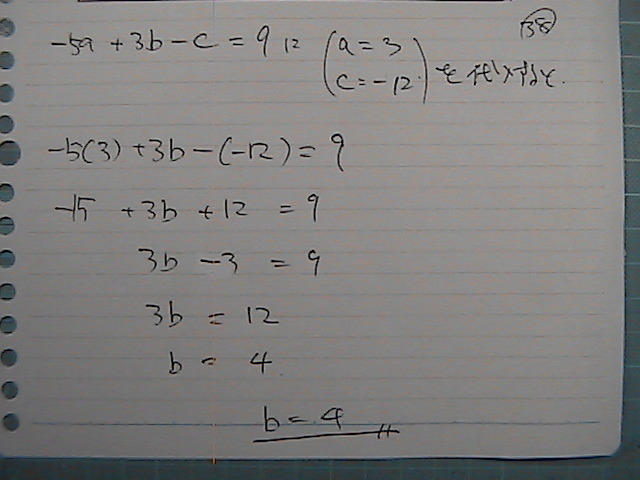 138
-5a + 3b - c = 9 に (a = 3
c = -12) を代入すると.
-5(3) + 3b - (-12) = 9
-15 + 3b + 12 = 9
3b - 3 = 9
3b = 12
b = 4
b = 4